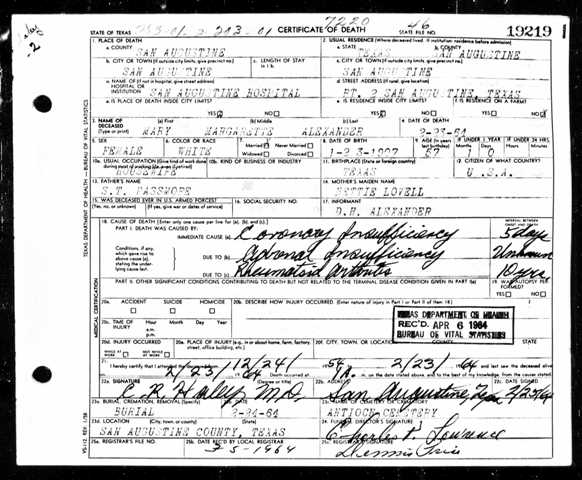 STATE OF TEXAS CERTIFICATE OF DEATH 7220 46 STATE FILE NO. 19219
1. PLACE OF DEATH 2. USUAL RESIDENCE (Where deceased lived. If institution: residence before admission)
a. COUNTY SAN AUGUSTINE a. STATE TEXAS b. COUNTY SAN AUGUSTINE
b. CITY OR TOWN (If outside city limits, give precinct no.) c. LENGTH OF STAY c. CITY OR TOWN (If outside city limits, give precinct no.)
SAN AUGUSTINE SAN AUGUSTINE
d. NAME OF (If not in hospital, give street address) HOSPITAL OR INSTITUTION SAN AUGUSTINE HOSPITAL d. STREET ADDRESS (If rural, give location) RT. 2 SAN AUGUSTINE, TEXAS
e. IS PLACE OF DEATH INSIDE CITY LIMITS? YES NO e. IS RESIDENCE INSIDE CITY LIMITS? YES NO f. IS RESIDENCE ON A FARM? YES NO
3. NAME OF DECEASED (Type or print) (a) First (b) Middle (c) Last 4. DATE OF DEATH
MARY MARGARETTE ALEXANDER 2-23-64
5. SEX 6. COLOR OR RACE 7. Married Never Married Widowed Divorced 8. DATE OF BIRTH 9. AGE IF UNDER 1 YEAR IF UNDER 24 HRS.
FEMALE WHITE 67 1 0
10a. USUAL OCCUPATION (Give kind of work done 10b. KIND OF BUSINESS OR INDUSTRY 11. BIRTHPLACE (State or foreign country) 12. CITIZEN OF WHAT COUNTRY?
HOUSEWIFE TEXAS U.S.A.
13. FATHER'S NAME 14. MOTHER'S MAIDEN NAME
S.T. PASSMORE BETTIE LOVELL
15. WAS DECEASED EVER IN U.S. ARMED FORCES? 16. SOCIAL SECURITY NO. 17. INFORMANT
(Yes, no, or unknown) (If yes, give war or dates of service) D.H. ALEXANDER
18. CAUSE OF DEATH (Enter only one cause per line for (a), (b), and (c).) INTERVAL BETWEEN
PART I. DEATH WAS CAUSED BY:
IMMEDIATE CAUSE (a) Coronary Insufficiency 5 days
Conditions, if any, which gave rise to above cause (a), stating the underlying cause last. DUE TO (b) Adrenal Insufficiency Unknown
DUE TO (c) Rheumatoid Arthritis 10 yrs
PART II. OTHER SIGNIFICANT CONDITIONS CONTRIBUTING TO DEATH BUT NOT RELATED TO THE TERMINAL DISEASE CONDITION GIVEN IN PART I(a) 19. WAS AUTOPSY PERFORMED? YES NO
20a. ACCIDENT SUICIDE HOMICIDE 20b. DESCRIBE HOW INJURY OCCURRED. (Enter nature of injury in Part I or Part II of item 18.)
20c. TIME OF INJURY Hour Month Day Year a.m. p.m.
TEXAS DEPARTMENT OF HEALTH
REC'D APR 6 1964
BUREAU OF VITAL STATISTICS
20d. INJURY OCCURRED WHILE AT WORK NOT WHILE AT WORK 20e. PLACE OF INJURY (e.g. in or about home, farm, factory, street, office building, etc.) 20f. CITY, TOWN, OR LOCATION COUNTY STATE
21. I hereby certify that I attended the deceased from 12/24/ 54 to 2/23/ 64 and last saw the deceased alive
on 2/23 64 Death occurred at m. on the date stated above, and to the best of my knowledge, from the causes stated.
22a. SIGNATURE C.R. Haley, M.D. 22b. ADDRESS San Augustine, Texas 22c. DATE SIGNED 2/25/64
23a. BURIAL, CREMATION, REMOVAL (Specify) 23b. DATE 23c. NAME OF CEMETERY OR CREMATORY
BURIAL 2-24-64 ANTIOCH CEMETERY
23d. LOCATION (City, town, or county) (State) 24. FUNERAL DIRECTOR'S SIGNATURE
SAN AUGUSTINE COUNTY, TEXAS Charles P. Lawrence
25a. REGISTRAR'S FILE NO. 25b. DATE REC'D BY LOCAL REGISTRAR 25c. REGISTRAR'S SIGNATURE
3-5-1964 Dennis Price
TEXAS DEPARTMENT OF HEALTH — BUREAU OF VITAL STATISTICS
MEDICAL CERTIFICATION